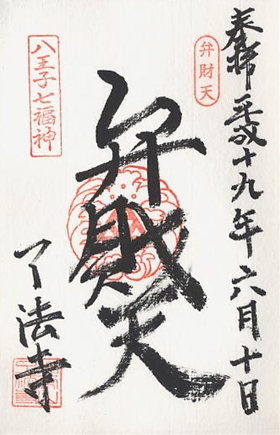 奉拝 平成十九年六月十日
弁財天
弁財天
八王子七福神
了法寺